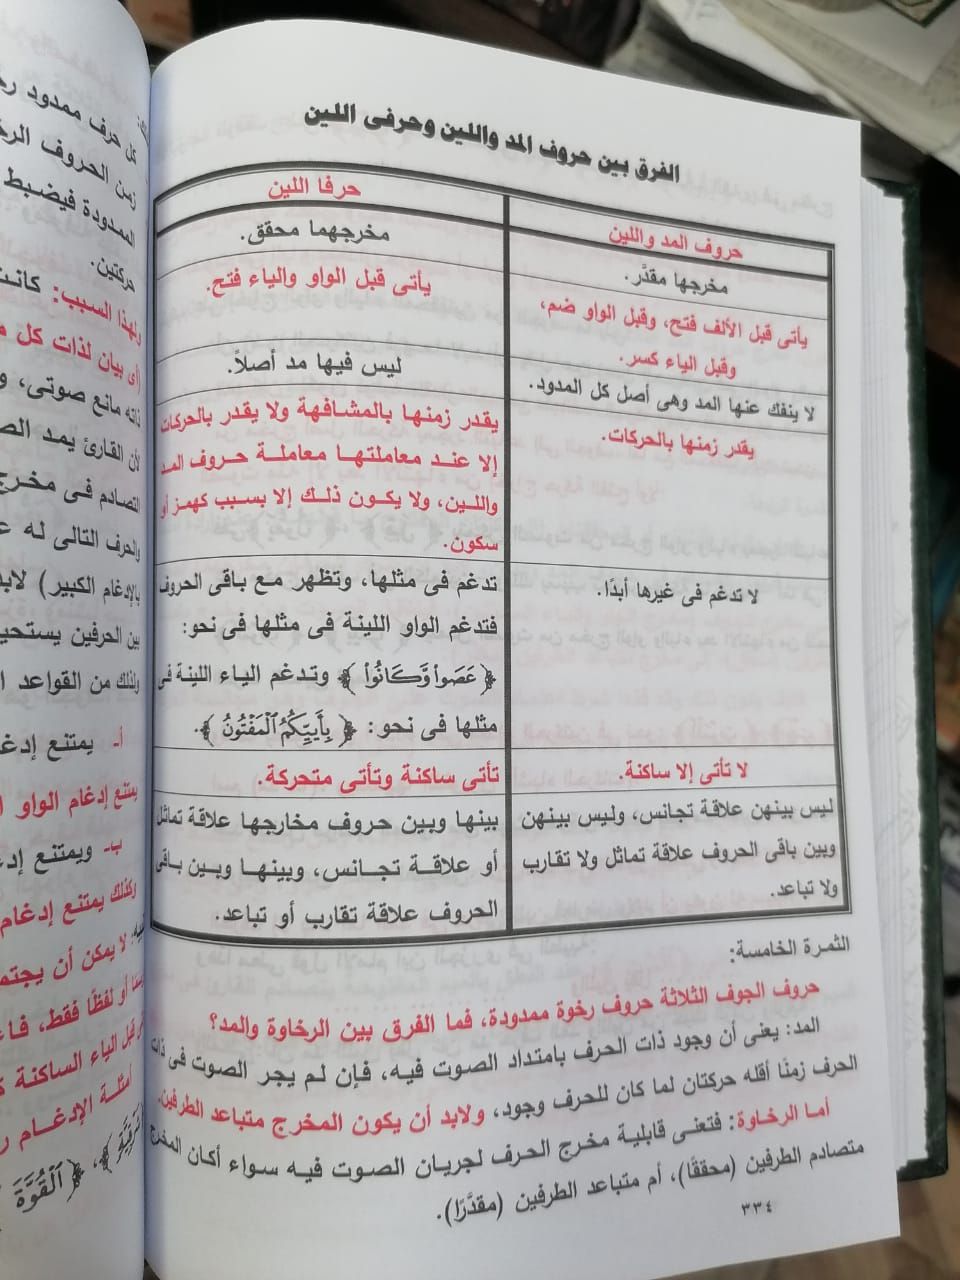 الفرق بين حروف المد واللين وحرفى اللين
حروف المد واللين
حرفا اللين
مخرجها مقدَّر.
مخرجهما محقق.
يأتى قبل الألف فتح، وقبل الواو ضم،
وقبل الياء كسر.
يأتى قبل الواو والياء فتح.
لا ينفك عنها المد وهى أصل كل المدود.
ليس فيها مد أصلاً.
يقدر زمنها بالحركات.
يقدر زمنها بالمشافهة ولا يقدر بالحركات
إلا عند معاملتها معاملة حروف المد
واللين، ولا يكون ذلك إلا بسبب كهمز أو
سكون.
لا تدغم فى غيرها أبدًا.
تدغم فى مثلها، وتظهر مع باقى الحروف
فتدغم الواو اللينة فى مثلها فى نحو:
﴿عَصَوا۟ وَّكَانُوا۟﴾ وتدغم الياء اللينة فى
مثلها فى نحو: ﴿بِأَييِّكُمُ ٱلْمَفْتُونُ﴾.
لا تأتى إلا ساكنة.
تأتى ساكنة وتأتى متحركة.
ليس بينهن علاقة تجانس، وليس بينهن
وبين باقى الحروف علاقة تماثل ولا تقارب
ولا تباعد.
بينها وبين حروف مخارجها علاقة تماثل
أو علاقة تجانس، وبينها وبين باقى
الحروف علاقة تقارب أو تباعد.
الثمرة الخامسة:
حروف الجوف الثلاثة حروف رخوة ممدودة، فما الفرق بين الرخاوة والمد؟
المد: يعنى أن وجود ذات الحرف بامتداد الصوت فيه، فإن لم يجر الصوت فى ذات
الحرف زمنًا أقله حركتان لما كان للحرف وجود، ولابد أن يكون المخرج متباعد الطرفين.
أما الرخاوة: فتعنى قابلية مخرج الحرف لجريان الصوت فيه سواء أكان المخرج
متصادم الطرفين (محققًا)، أم متباعد الطرفين (مقدَّرًا).
٣٣٤
كل حرف ممدود
زمن الحروف
الممدودة فيضبط
حركتين.
ولهذا السبب: كانت
(أى بيان لذات كل
ذاته مانع صوتى،
لأن القارئ يمد
التصادم فى مخرج
والحرف التالى له
بالإدغام الكبير) لابد
بين الحرفين يستحيل
ولذلك من القواعد
أ- يمتنع
يمتنع إدغام الواو
ب- ويمتنع
وكذلك يمتنع إدغام
لا يمكن أن
أو لفظًا فقط،
قبل الياء الساكنة
أمثلة الإدغام
﴿ٱلْقُوَّةَ